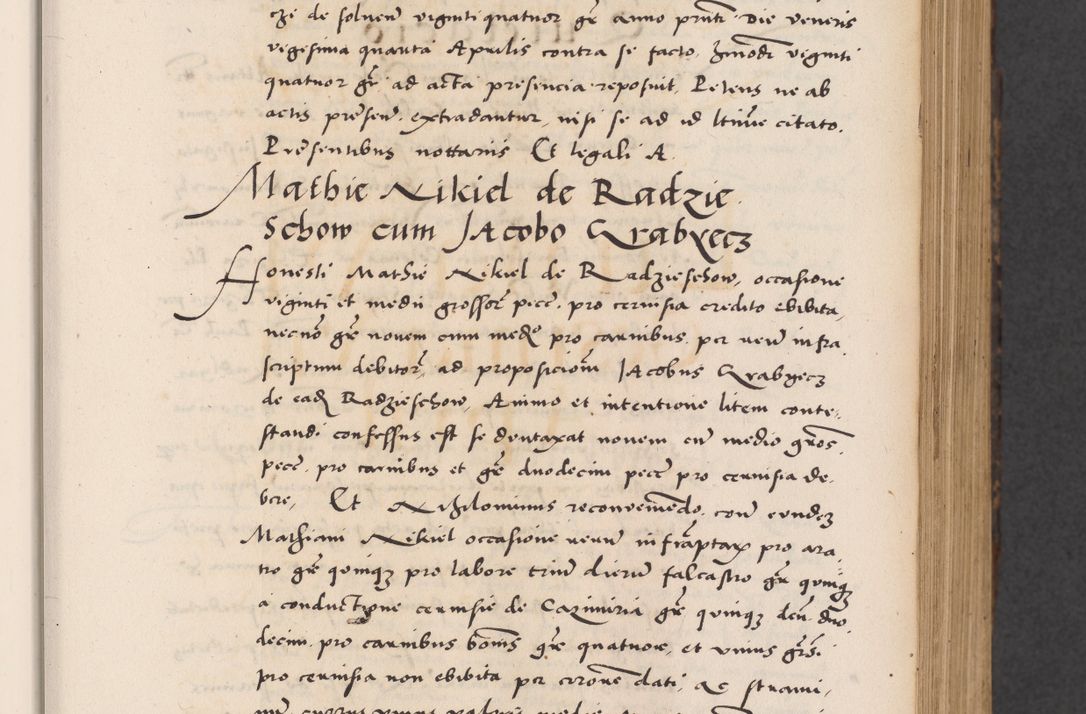 de solven viginti quatuor gr anno prnti die veneris
vigesima quarta Aprilis contra se facto, viginti
quatuor gr ad acta presencia reposuit, Petens ne ab
actis presen extradantur, nisi se ad id citato,
Presentibus nottariis Et legali A
Mathie Nikiel de Radzie
schow cum Jacobo Grabyecz
Honesti Mathie Nikiel de Radzieschow, occasione
viginti et medii grossor pecc, pro cervisia credito ebibita,
necno gr novem cum medo pro carnibus per infra
scriptum debitor, ad proposicionem Jacobus Grabyecz
de ead Radzieschow, Animo et intentione litem conte,
standi confessus est se duntaxat novem cu medio gros
pecc pro carnibus et gr duodecim pecc pro cervisia de,
bere, Et reconveniendo con eundem
Mathiam Nikiel occasione rerum infrascriptarum pro ara,
tro gr quinqz pro labore trium dierum falcastro gr quinqz
a conductione cervisie de Cazimiria gr quinqz den duo
decim, pro carnibus bonis gr quatuor, et unius grosi
pro cervisia non ebibita per dati, ac strami,